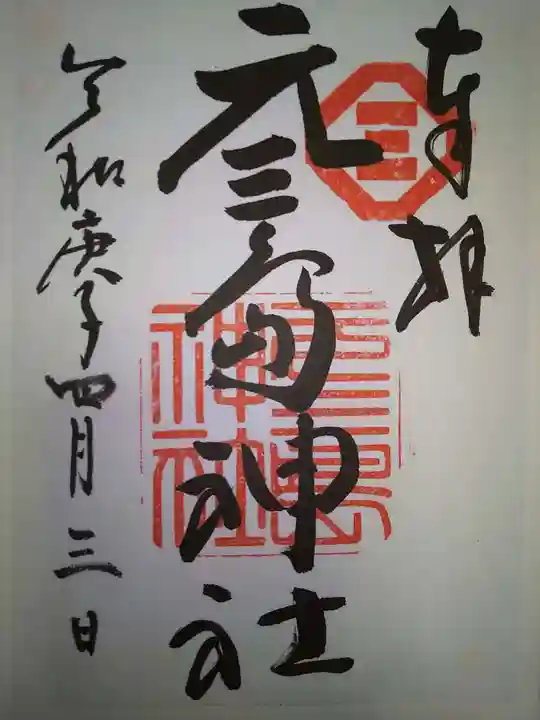 奉拝
元三島神社
令和庚子四月三日
元三島
神社